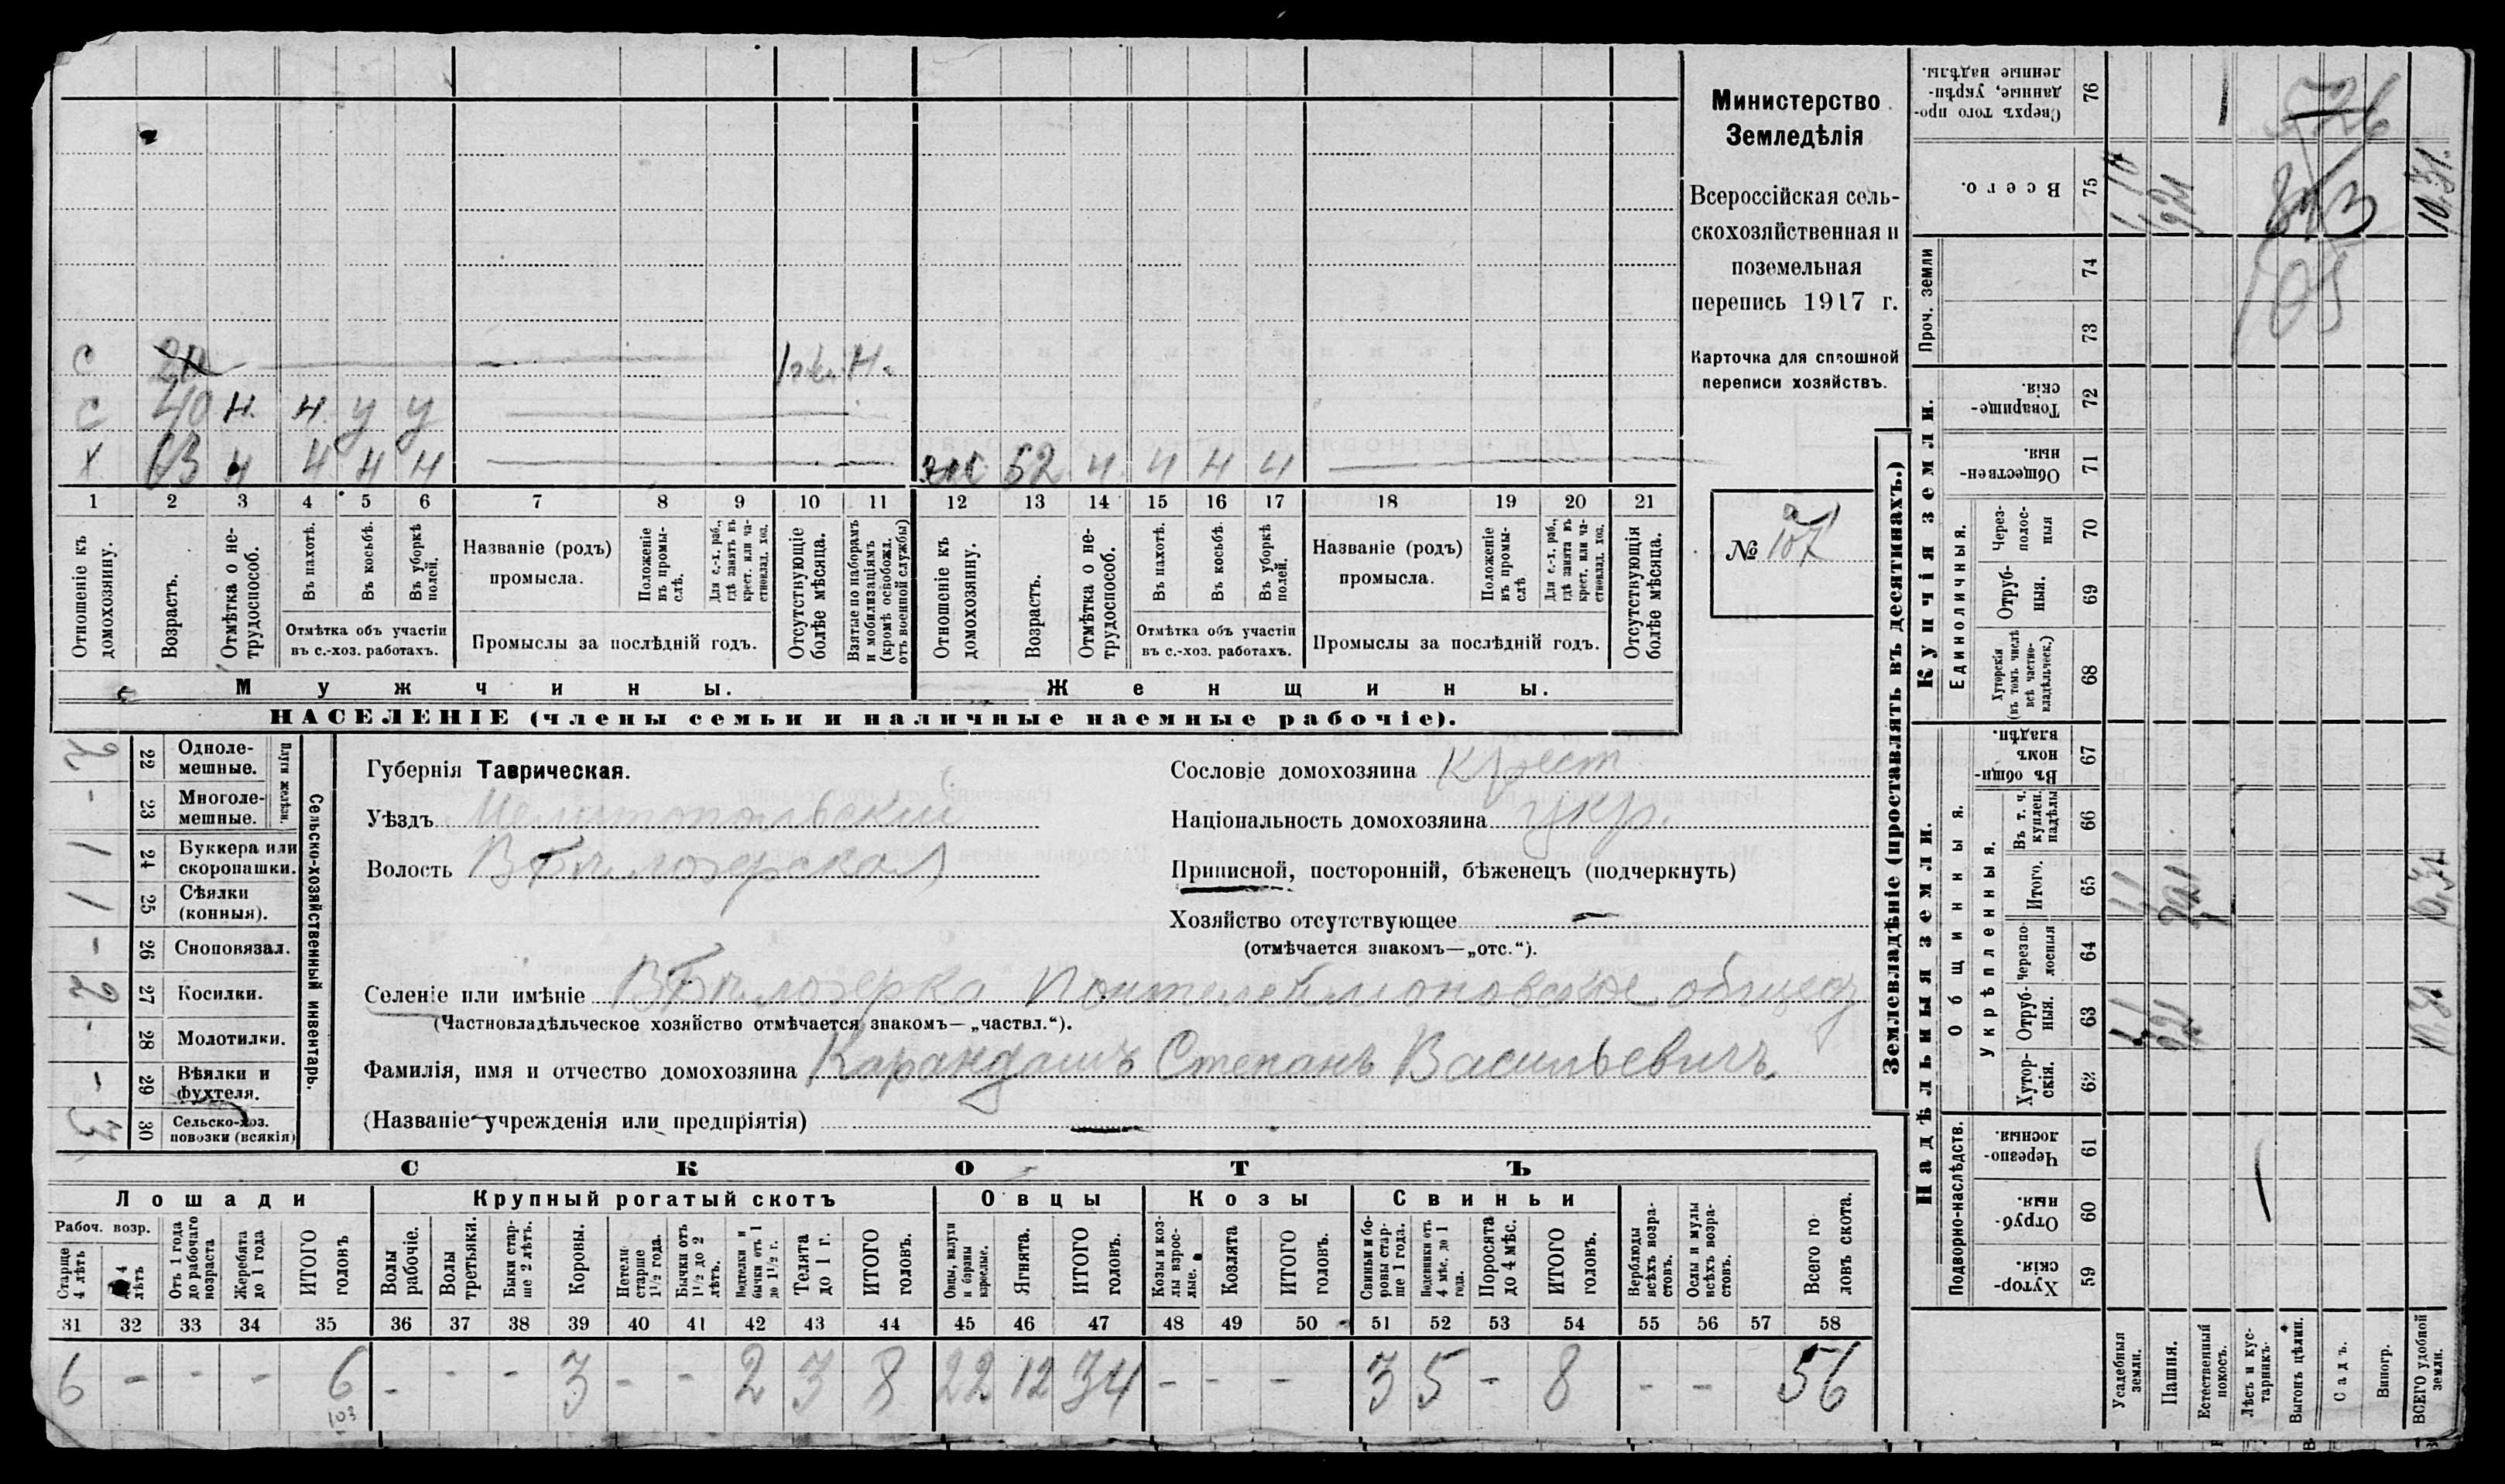 Министерство
Земледѣлія
Всероссійская сель-
скохозяйственная и
поземельная
перепись 1917 г.
Карточка для сплошной
переписи хозяйствъ.
№ 107
С 20
С 40 н. н у у
Х 63 н н н н
жс 62 н н н н
1 2 3 4 5 6 7 8 9 10 11 12 13 14 15 16 17 18 19 20 21
Отношеніе къ домохозяину.
Возрастъ.
Отмѣтка о не-трудоспособ.
Въ пахотѣ.
Въ косьбѣ.
Въ уборкѣ полей.
Отмѣтка объ участіи
въ с.-хоз. работахъ.
Названіе (родъ)
промысла.
Положеніе въ промы-слѣ.
Для с.-х. раб., гдѣ занятъ въ крест. или ча-стновлад. хоз.
Промыслы за послѣдній годъ.
Отсутствующіе болѣе мѣсяца.
Взятые по наборамъ и мобилизаціямъ (кромѣ освобожд. отъ военной службы)
Отношеніе къ домохозяину.
Возрастъ.
Отмѣтка о не-трудоспособ.
Въ пахотѣ.
Въ косьбѣ.
Въ уборкѣ полей.
Отмѣтка объ участіи
въ с.-хоз. работахъ.
Названіе (родъ)
промысла.
Положеніе въ промы-слѣ
Для с.-х. раб., гдѣ занята въ крест. или ча-стновлад. хоз.
Промыслы за послѣдній годъ.
Отсутствующія болѣе мѣсяца.
Мужчины.
Женщины.
НАСЕЛЕНІЕ (члены семьи и наличные наемные рабочіе).
Сельско-хозяйственный инвентарь.
Плуги желѣзн.
2 22 Одноле-мешные.
- 23 Многоле-мешные.
1 24 Буккера или скоропашки.
1 25 Сѣялки (конныя).
- 26 Сноповязал.
2 27 Косилки.
- 28 Молотилки.
- 29 Вѣялки и фухтеля.
3 30 Сельско-хоз. повозки (всякія)
Губернія Таврическая.
Уѣздъ Мелитопольскій
Волость В Бѣлозерская
Сословіе домохозяина крест
Національность домохозяина укр.
Приписной, посторонній, бѣженецъ (подчеркнуть)
Хозяйство отсутствующее —
(отмѣчается знакомъ—„отс.“).
Селеніе или имѣніе В Бѣлозерка Понтелеймоновское общес
(Частновладѣльческое хозяйство отмѣчается знакомъ—„частвл.“).
Фамилія, имя и отчество домохозяина Карандашъ Степанъ Васильевичъ.
(Названіе учрежденія или предпріятія) —
СКОТЪ
Лошади Крупный рогатый скотъ Овцы Козы Свиньи
Рабоч. возр.
Старше 4 лѣтъ
4 лѣтъ
Отъ 1 года до рабочаго возраста
Жеребята до 1 года
ИТОГО головъ
Волы рабочіе.
Волы третьяки.
Быки стар-ше 2 лѣтъ.
Коровы.
Нетели старше 1½ года.
Бычки отъ 1½ до 2 лѣтъ.
Подтелки и бычки отъ 1 до 1½ г.
Телята до 1 г.
ИТОГО головъ.
Овцы, валухи и бараны взрослые.
Ягнята.
ИТОГО головъ.
Козы и коз-лы взрос-лые.
Козлята
ИТОГО головъ.
Свиньи и бо-ровы стар-ше 1 года.
Подсвинки отъ 4 мѣс. до 1 года.
Поросята до 4 мѣс.
ИТОГО головъ.
Верблюды всѣхъ возра-стовъ.
Ослы и мулы всѣхъ возра-стовъ.
Всего го-ловъ скота.
31 32 33 34 35 36 37 38 39 40 41 42 43 44 45 46 47 48 49 50 51 52 53 54 55 56 57 58
6 - - - 6 - - - 3 - - 2 3 8 22 12 34 - - - 3 5 - 8 - - 56
103
Землевладѣніе (проставлять въ десятинахъ.)
Надѣльныя земли.
Купчія земли.
Проч. земли
Подворно-наслѣдств.
Общинныя.
Укрѣпленныя.
Единоличныя.
76 Сверхъ того про-данные, укрѣп-ленные надѣлы.
75 Всего.
74
73
72 Товарище-скія.
71 Обществен-ныя.
70 Через-полос-ныя
69 Отруб-ныя.
68 Хуторскія (въ томъ числѣ всѣ частно-владѣльческ.)
67 Въ общин-номъ владѣн.
66 Въ т. ч. куплен. надѣлы
65 Итого.
64 Черезпо-лосныя
63 Отруб-ныя.
62 Хутор-скія.
61 Черезпо-лосныя.
60 Отруб-ныя.
59 Хутор-скія.
Усадебныя земли.
Пашня.
Естественный покосъ.
Лѣсъ и кус-тарникъ.
Выгонъ цѣлин.
Садъ.
Виногр.
ВСЕГО удобной земли.
1,1 921 10,31
1,1 921 10,31
1,10 921 10,31.
526
105